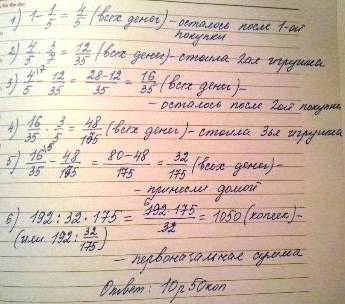 1) 1 - 1/5 = 4/5 (всех денег) - осталось после 1-ой
покупки
2) 4/5 · 3/7 = 12/35 (всех денег) - стоила 2ая игрушка
3) 4/5 - 12/35 = 28-12/35 = 16/35 (всех денег) -
- осталось после 2ой покупки
4) 16/35 · 3/5 = 48/175 (всех денег) - стоила 3ья игрушка
5) 16/35 - 48/175 = 80-48/175 = 32/175 (всех денег) -
- принесли домой
6) 192 : 32 · 175 = 192·175/32 = 1050 (копеек) -
(или 192 : 32/175)
- первоначальная сумма
Ответ: 10р 50коп